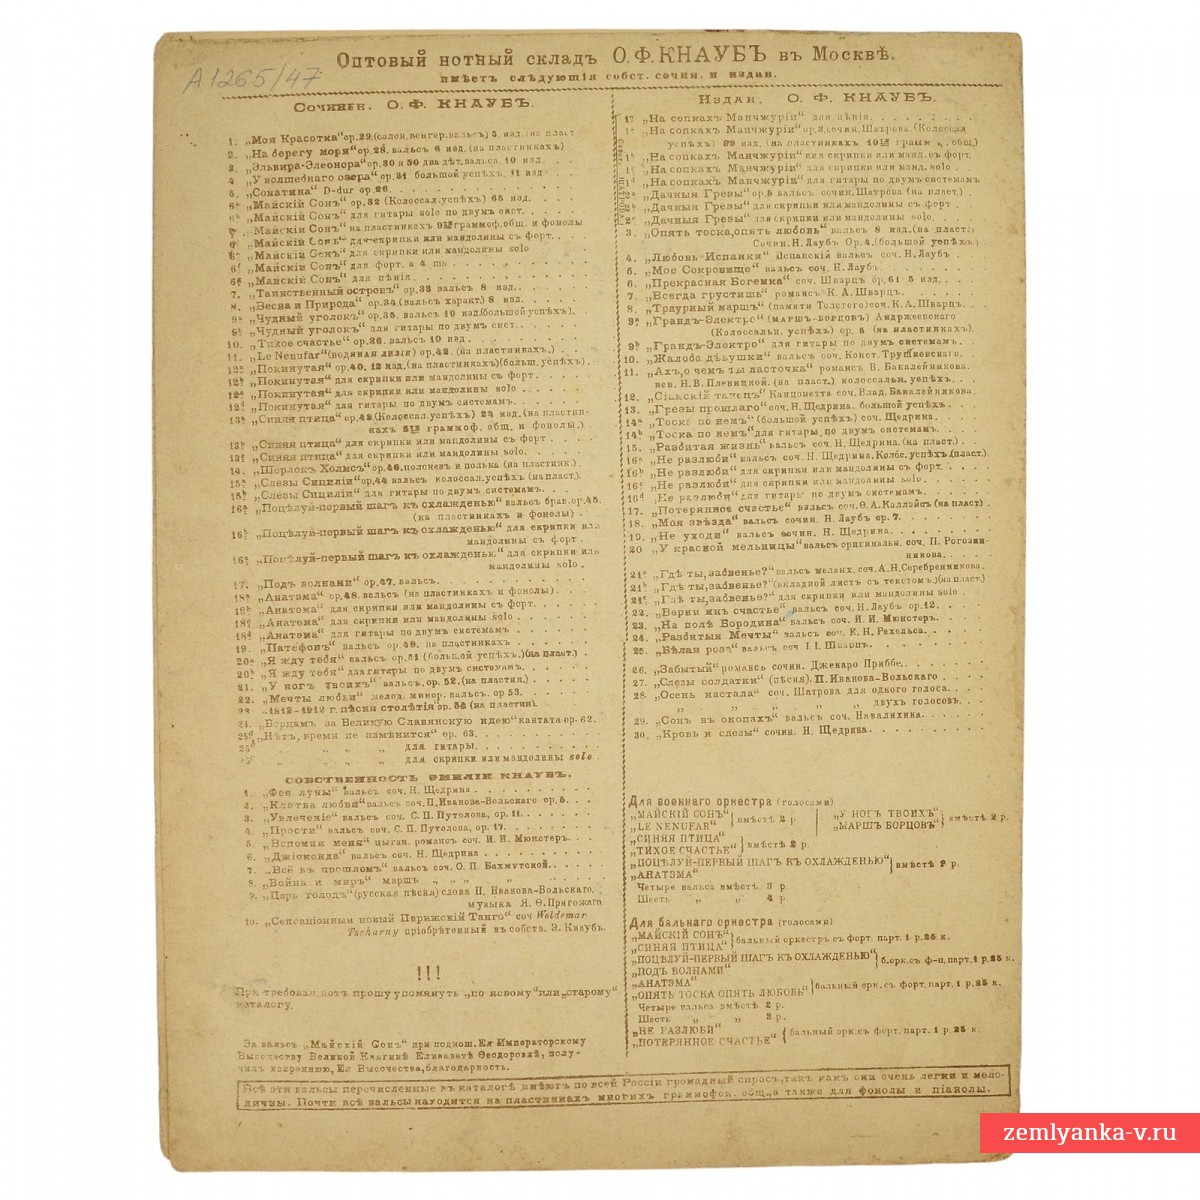 Оптовый нотный складъ О.Ф.КНАУБЪ въ Москвѣ.
имѣетъ слѣдующія собст. сочин. и издан.
А1265/47
Сочинен. О.Ф. КНАУБЪ.
1. „Моя Красотка" ор.29.(салон.венгер.вальсъ) 5, изд. (на пласт
2. „На берегу моря" ор.28. вальсъ 6 изд. (на пластинкахъ)
3. „Эльвира-Элеонора" ор.30 и 50 два дѣт.вальса. 10 изд.
4. „У волшебнаго озера" ор.31 большой успѣхъ. 11 изд
5. „Сонатина" D-dur op.26.
6ª „Майскій Сонъ" ор.32 (Колоссал.успѣхъ) 65 изд.
„Майскій Сонъ" для гитары solo по двумъ сист.
„Майскій Сонъ" на пластинкахъ граммоф.общ. и фонолы
„Майскій Сонъ" для скрипки или мандолины съ форт.
„Майскій Сонъ" для скрипки или мандолины solo
„Майскій Сонъ" для форт. в 4 
„Майскій Сонъ" для пѣнія.
7. „Таинственный островъ" ор.33 вальсъ 8 изд.
8. „Весна и Природа" ор.34 (вальсъ характ.) 8 изд.
9ª „Чудный уголокъ" ор.35. вальсъ 10 изд.(большой успѣхъ).
9ᵇ „Чудный уголокъ" для гитары по двумъ сист.
10. „Тихое счастье" ор.36. вальсъ 10 изд.
11. „Le Nenufar" (водяная лилія) ор.42. (на пластинкахъ.)
12ª „Покинутая" ор.40. 12 изд. (на пластинкахъ)(больш. успѣхъ).
12ᵇ „Покинутая" для скрипки или мандолины съ форт.
12ᶜ „Покинутая" для скрипки или мандолины solo
12ᵈ „Покинутая" для гитары по двумъ системамъ.
13ª „Синяя птица" ор.43 (Колоссал.успѣхъ) 24 изд. (на пластин-
кахъ граммоф. общ. и фонолы.)
13ᵇ „Синяя птица" для скрипки или мандолины съ форт
13ᶜ „Синяя птица" для скрипки или мандолины solo.
14. „Шерлокъ Холмсъ" ор.46.полонезъ и полька (на пластинк.)
15ª „Слезы Сициліи" ор.44 вальсъ колоссал.успѣхъ (на пласт.)
15ᵇ „Слезы Сициліи" для гитары по двумъ системамъ.
16ª „Поцѣлуй-первый шагъ къ охлажденью" вальсъ брав.ор.45.
(на пластинкахъ и фонолы)
16ᵇ „Поцѣлуй-первый шагъ къ охлажденью" для скрипки или
мандолины съ форт.
16ᶜ „Поцѣлуй-первый шагъ къ охлажденью" для скрипки или
мандолины solo.
17. „Подъ волнами" ор.47. вальсъ.
18ª „Анатэма" ор.48. вальсъ (на пластинкахъ и фонолы).
18ᵇ „Анатэма" для скрипки или мандолины съ форт.
18ᶜ „Анатэма" для скрипки или мандолины solo
18ᵈ „Анатэма" для гитары по двумъ системамъ
19. „Патефонъ" вальсъ ор.49. на пластинкахъ
20ª „Я жду тебя" вальсъ ор.51 (большой успѣхъ.)(на пласт.)
20ᵇ „Я жду тебя" для гитары по двумъ системамъ.
21. „У ногъ твоихъ" вальсъ ор. 52. (на пластин.)
22. „Мечты любви" мелод. минор. вальсъ ор. 53.
23. „1812-1912 г. пѣсня столѣтія" ор. 54 (на пластин).
24. „Борцамъ за Великую Славянскую идею" кантата ор-62.
25ª „Нѣтъ, время не измѣнится" ор. 63.
25ᵇ „ „ „ „ для гитары.
25ᶜ „ „ „ „ для скрипки или мандолины solo.
СОБСТВЕННОСТЬ ЭМИЛІИ КНАУБЪ.
1. „Фея луны" вальсъ соч. Н. Щедрина
2. „Клятва любви" вальсъ соч.П.Иванова-Вольскаго ор.5.
3. „Увлеченіе" вальсъ соч. С. П. Путолова, ор. 11.
4. „Прости" вальсъ соч. С. П. Путолова, ор. 17.
5. „Вспомни меня" цыган. романсъ соч. И. И. Мюнстеръ.
6. „Джіоконда" вальсъ соч. Н. Щедрина
7. „Всё въ прошломъ" вальсъ соч. О. П. Бахмутской.
8. „Война и миръ" маршъ „ „ „ „
9. „Царь голодъ" (русская пѣсня) слова П. Иванова-Вольскаго.
музыка Я. Ѳ.Пригожаго
10. „Сенсаціонный новый Парижскій Танго" соч Woldemar
Tscharny пріобрѣтенный въ собств. Э. Кнаубъ.
!!!
При требован. нотъ прошу упомянуть „по новому" или „старому"
каталогу.
За вальсъ „Майскій Сонъ" при поднош. Ея Императорскому
Высочеству Великой Княгинѣ Елизаветѣ Ѳеодоровнѣ, полу-
чилъ искреннюю, Ея Высочества, благодарность.
Издан. О. Ф. КНАУБЪ.
1ª „На сопкахъ Манчжуріи" для пѣнія.
„На сопкахъ Манчжуріи" ор.3.сочин. Шатрова. (Колоссал
успѣхъ) изд. (на пластинкахъ грамм общ.)
1ᵇ „На сопкахъ Манчжуріи" для скрипки или манд. съ форт.
„На сопкахъ Манчжуріи" для скрипки или манд. solo
1ᵈ „На сопкахъ Манчжуріи" для гитары по двумъ системамъ
2ª „Дачныя Грезы" ор.5 вальсъ сочин. Шатрова (на пласт.)
2ᵇ „Дачныя Грезы" для скрипки или мандолины съ форт
2ᶜ „Дачныя Грезы" для скрипки или мандолины solo.
3. „Опять тоска,опять любовь" вальсъ 8 изд.(на пласт.)
Сочин.Н.Лаубъ Ор.4.(большой успѣхъ.)
4. „Любовь Испанки" Испанскій вальсъ соч. Н. Лаубъ
5. „Мое Сокровище" вальсъ соч. Н. Лаубъ.
6. „Прекрасная Богемка" соч. Шварцъ ор. 61 5 изд.
7. „Всегда грустишь" романсъ К. А. Шварцъ.
8. „Траурный маршъ" (памяти Толстого) соч. К. А. Шварцъ.
9ª „Грандъ-Электро" (МАРШЪ-БОРЦОВЪ) Андржеевскаго
(Колоссальн. успѣхъ) ор. 5 (на пластинкахъ).
9ᵇ „Грандъ-Электро" для гитары по двумъ системамъ.
10. „Жалоба дѣвушки" вальсъ соч. Конст. Трушновскаго.
11. „Ахъ,о чемъ ты ласточка" романсъ В. Бакалейникова.
исп. Н. В. Плевицкой. (на пласт.) колоссальн. успѣхъ.
12. танецъ" Канцонетта соч. Влад. Бакалейникова.
13. „Грезы прошлаго" соч. Н. Щедрина. большой успѣхъ.
14ª „Тоска по нем" (большой успѣхъ) соч. Щедрина.
14ᵇ „Тоска по нем" для гитары, по двумъ системамъ.
15. „Разбитая жизнь" вальсъ соч. Н. Щедрина. (на пласт.)
16ª „Не разлюби" вальсъ соч. Н. Щедрина. Колос. успѣхъ.(пласт.)
16ᵇ „Не разлюби" для скрипки или мандолины съ форт.
16ᶜ „Не разлюби" для скрипки или мандолины solo
16ᵈ „Не разлюби" для гитары по двумъ системамъ.
17. „Потерянное счастье" вальсъ соч. Ѳ. А. Каллайсъ (на пласт)
18. „Моя звѣзда" вальсъ сочин. Н. Лаубъ ор. 7.
19. „Не уходи" вальсъ сочин. Н. Щедрина.
20 „У красной мельницы" вальсъ оригинальн. соч. П. Рогозин-
никова.
21ª „Гдѣ ты, забвенье?" вальсъ меланх. соч. А. Н. Серебренникова.
21ᵇ „Гдѣ ты, забвенье?" (вкладной листъ съ текстомъ.)(на пласт.)
21ᶜ „Гдѣ ты, забвенье?" для скрипки или мандолины solo
22. „Верни мнѣ счастье" вальсъ соч. Н. Лаубъ ор. 12.
23. „На полѣ Бородина" вальсъ соч. И. И. Мюнстеръ.
24. „Разбитыя Мечты" вальсъ соч. Е. Н. Рехельса.
25. „Бѣлая роза" вальсъ соч. Шварцъ.
26. „Забытый" романсъ сочин. Дженаро Приббе.
27. „Слезы солдатки" (пѣсня). П. Иванова-Вольскаго
28. „Осень настала" соч. Шатрова для одного голоса.
„ „ „ „ „ двухъ голосовъ.
29. „Сонъ въ окопахъ" вальсъ соч. Навалихина.
30. „Кровь и слезы" сочин. Н. Щедрина.
Для военнаго оркестра (голосами)
„МАЙСКІЙ СОНЪ"
„LE NENUFAR" вмѣстѣ 2 р.
„У НОГЪ ТВОИХЪ"
„МАРШЪ БОРЦОВЪ" вмѣстѣ 2 р.
„СИНЯЯ ПТИЦА"
„ТИХОЕ СЧАСТЬЕ" вмѣстѣ 2 р.
„ПОЦѢЛУЙ-ПЕРВЫЙ ШАГЪ КЪ ОХЛАЖДЕНЬЮ"
„АНАТЭМА" вмѣстѣ 2 р.
Четыре вальса вмѣстѣ 3 р.
Шесть „ „ 4 р.
Для бальнаго оркестра (голосами)
„МАЙСКІЙ СОНЪ"
„СИНЯЯ ПТИЦА" бальный оркестръ съ форт. парт. 1 р. 25 к.
„ПОЦѢЛУЙ-ПЕРВЫЙ ШАГЪ КЪ ОХЛАЖДЕНЬЮ"
„ПОДЪ ВОЛНАМИ" б.орк.съ ф-п. парт. 1 р. 25 к.
„АНАТЭМА"
„ОПЯТЬ ТОСКА ОПЯТЬ ЛЮБОВЬ" бальный орк. съ форт. парт. 1 р. 25 к.
Четыре вальса вмѣстѣ 2 р.
Шесть „ „ 3 р.
„НЕ РАЗЛЮБИ"
„ПОТЕРЯННОЕ СЧАСТЬЕ" бальный орк.съ форт. парт. 1 р. 25 к.
Всѣ эти вальсы перечисленные въ каталогѣ имѣютъ по всей Россіи громадный спросъ, такъ какъ они очень легки и мело-
дичны. Почти всѣ вальсы находятся на пластинкахъ многихъ граммофон. общ., а также для фонолы и піанолы.
zemlyanka-v.ru